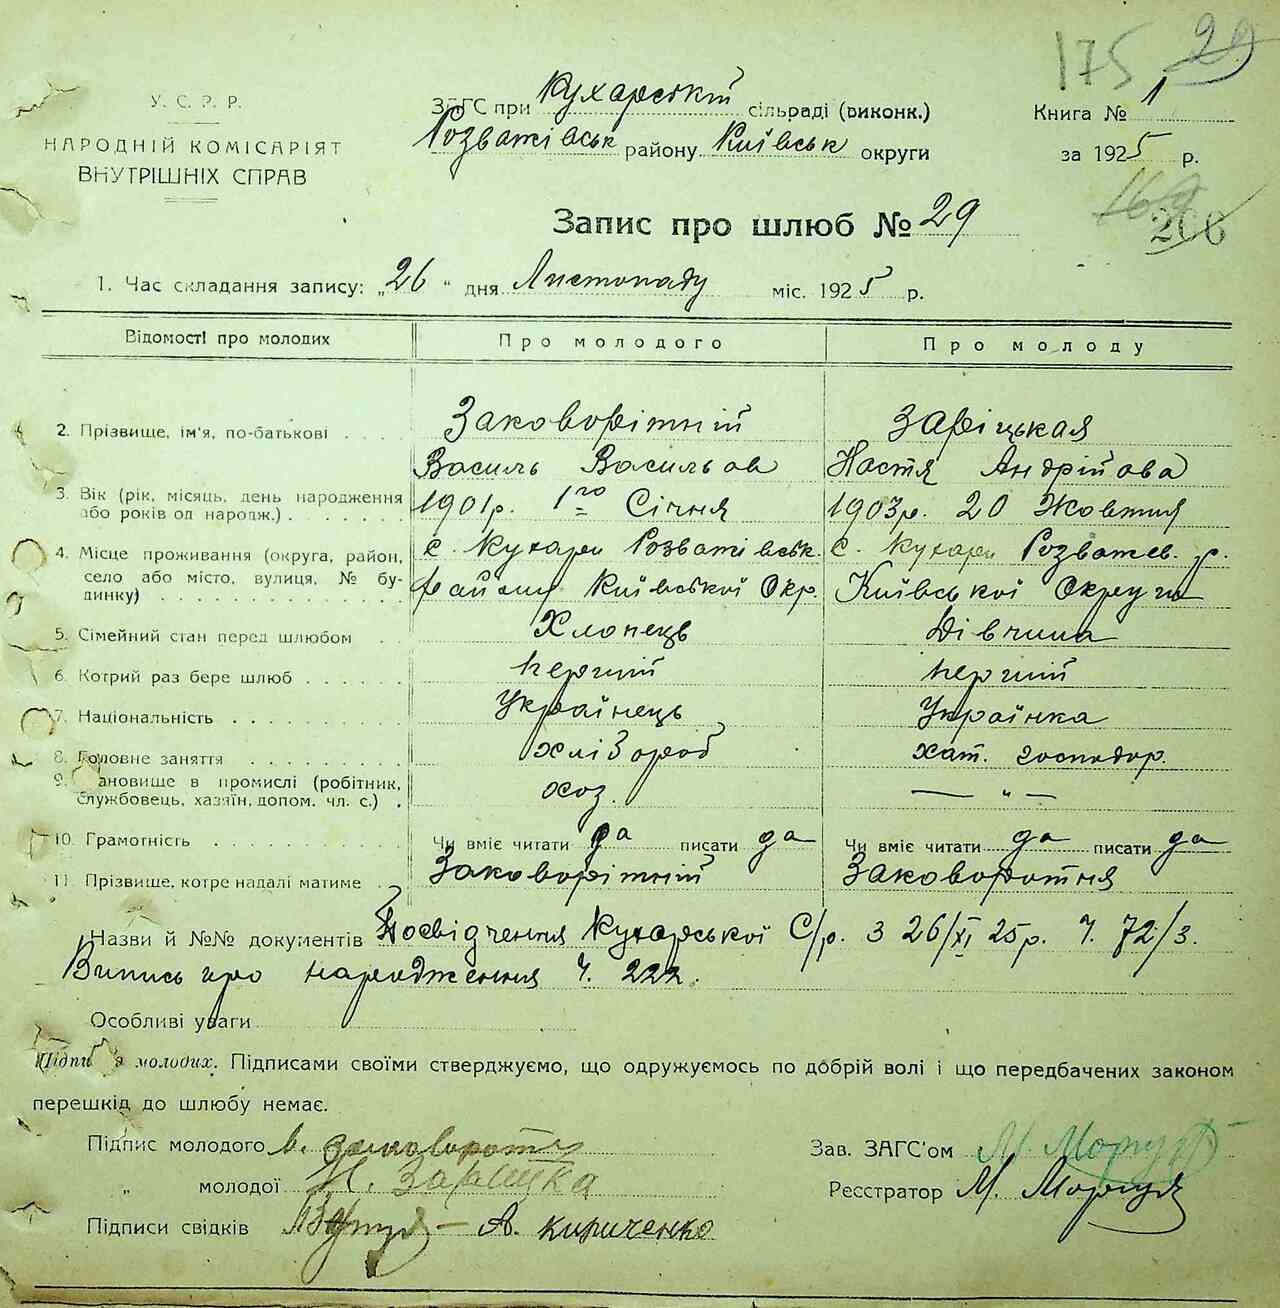 175 29
У. С. Р. Р.
НАРОДНІЙ КОМІСАРІЯТ
ВНУТРІШНІХ СПРАВ
ЗАГС при Кухарській сільраді (виконк.)
Розважівськ району Київськ округи
Книга № 1
за 1925 р.
Запис про шлюб № 29
169 206
1. Час складання запису: „26" дня Листопаду міс. 1925 р.
Відомості про молодих Про молодого Про молоду
2. Прізвище, ім'я, по-батькові Заковорітній Заріцькая
Василь Васильов Настя Андрійова
3. Вік (рік, місяць, день народження або років од народж.) 1901р. 1го Січня 1903р. 20 Жовтня
4. Місце проживання (округа, район, с. Кухари Розважівськ. с. Кухари Розважев. р.
село або місто, вулиця, № будинку) району Київської Окр. Київської Округи
5. Сімейний стан перед шлюбом Хлопець Дівчина
6. Котрий раз бере шлюб перший перший
7. Національність Українець Українка
8. Головне заняття хлібороб хат. господар.
9. Становище в промислі (робітник, службовець, хазяїн, допом. чл. с.) хоз. — „ —
10. Грамотність Чи вміє читати да писати да Чи вміє читати да писати да
11. Прізвище, котре надалі матиме Заковорітній Заковоротня
Назви й №№ документів Посвідчення Кухарської С/р. з 26/XI 25р. Ч. 72/3.
Випись про народження Ч. 222.
Особливі уваги
Підписи молодих. Підписами своїми стверджуємо, що одружуємось по добрій волі і що передбачених законом
перешкід до шлюбу немає.
Підпис молодого В. Заковоротн Зав. ЗАГС'ом
„ молодої Н. Зарицка Реєстратор М.
Підписи свідків А. Кириченко